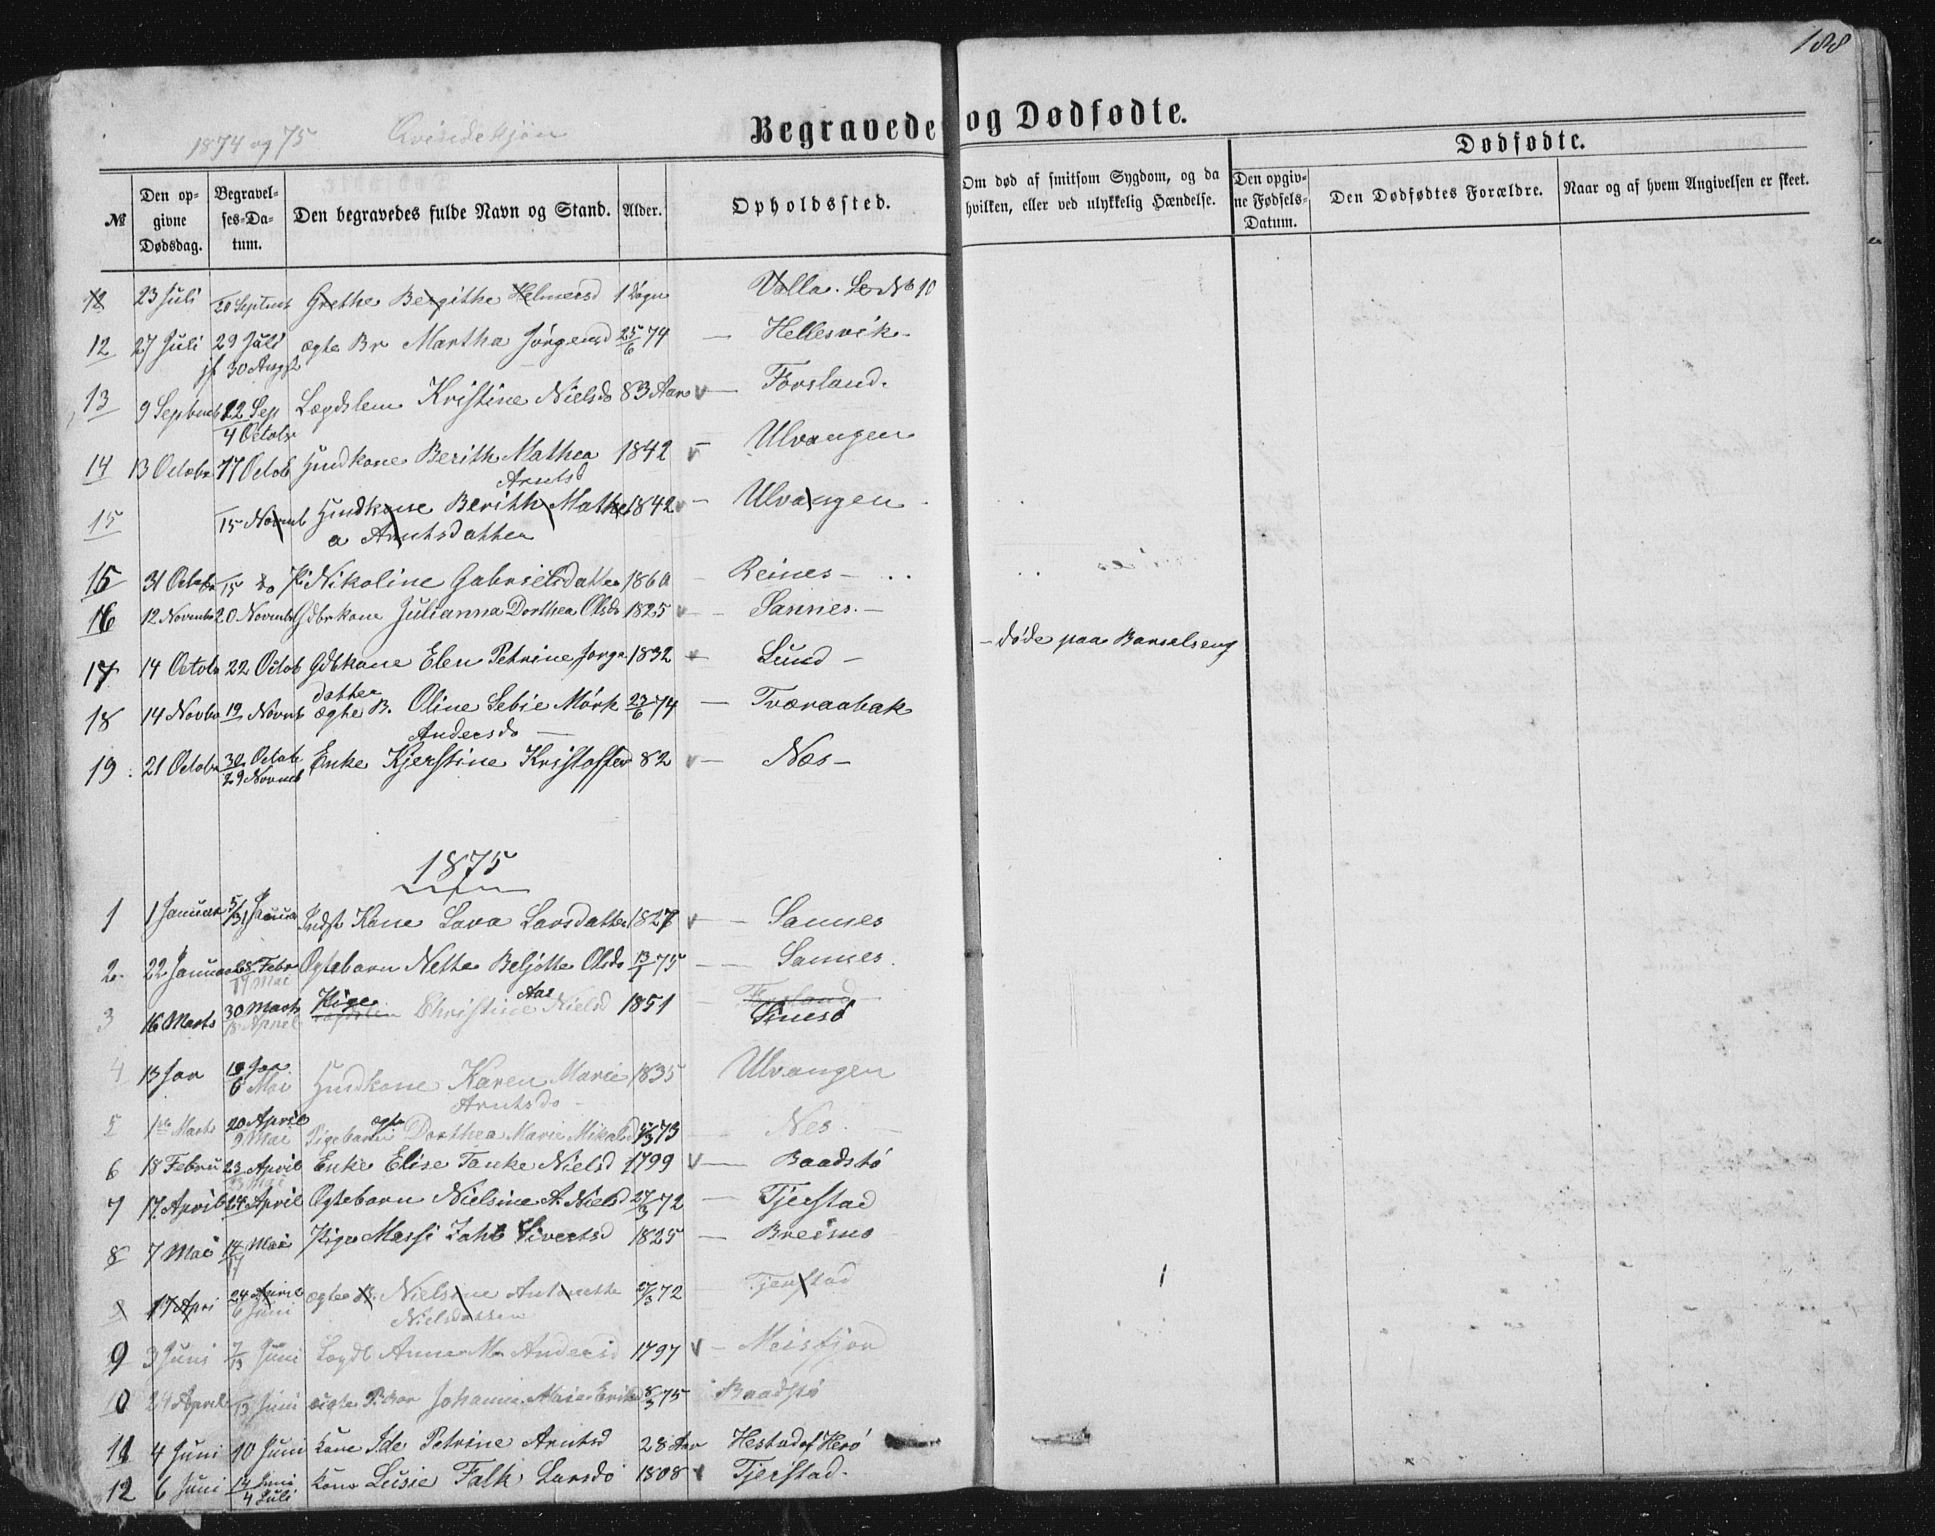 188
1874 og 75 Qvindekjøn
Begravede og Dødfødte.
Dødfødte.
№ Den opgivne Dødsdag. Begravelses-Datum. Den begravedes fulde Navn og Stand. Alder. Opholdssted. Om død af smitsom Sygdom, og da hvilken, eller ved ulykkelig Hændelse. Den opgivne Fødsels-Datum. Den Dødfødtes Forældre. Naar og af hvem Angivelsen er skeet.
12 23 Juli 20 Septemb Grethe Bergithe Helmersd 1 Døgn Valla. Se No 10
12 27 Juli 29 Juli ægte Br Martha Jørgensd 25/6 74 — Hellesvik —
jf 30 Aug
13 9 Septemb 12 Sep Lægdslem Kristine Nielsd 83 Aar v — Forsland.
4 Octobr
14 13 Octobr 17 Octob Huusmkone Berith Mathea 1842 v — Ulvangen
Arntsd
15 15 Novemb Kone Berith Mathe 1842 v — Ulvangen
a Arntsdatter
15 31 Octobr 15 do P. Nikoline Gabrielsdatter 1860 — Reines —
16 12 Novemb 20 Novemb Gdbrkone Julianna Dorthea Olsd 1825 v — Sannes. —
17 14 Octobr 22 Octob Gdbkone Elen Petrine Jørgn 1832 v — Lund — — døde paa Barselseng
datter
18 14 Novbr 19 Novmb ægte B. Oline Sebie Mørk 23/6 74 — Tværaabak
Andersd —
19 21 Octobr 30 Octob Enke Kjerstine Kristoffer 82 v — Nes —
29 Novemb
1875
1 1 Januar 5/31 Januar Indst Kone Lava Larsdatter 1827 v — Sannes
2 22 Januar 28 Febr Ægtebarn Nethe Beljette Olsd 13/1 75 — Sannes.
17 Mai
3 16 Marts 30 Marts Pige Christine Aas Nielsd 1851 — Forsland
18 April Tinesø
4 13 Jan 18 Jan Huusmkone Karen Marie 1835 Ulvangen
6 Mai Arntsd —
5 1ste Marts 20 April Pigebarn ægte Dorthea Marie Mikalsd 5/3 73 — Nes. —
9 Mai
6 18 Febru 23 April Enke Elise Tanke Nielsd 1799 v — Baadstø
7 17 April 24 April Ægtebarn Nielsine A. Nielsd 27/3 72 — Tjerstad
8 7 Mai 14 Mai Pige Messi Zahl Sivertsd 1825 — Breimo
8 17 Apri 24 April ægte B. Nielsine Antonette 27/3 72 Tjerstad
6 Juni Nielsdatter
9 3 Juni 7/13 Juni Lægdl Anna M. Andersd 1797 v — Meisfjord
10 29 April 13 Juni ægte P. Bar Johanna Maria Eriksd 8/3 75 Baadstø
11 4 Juni 10 Juni Kone Ide Petrine Arntsd 28 Aar Hestad af Herø
12 6 Juni 14 Juni Kone Lusie Falk Larsd 1808 v Tjerstad.
4 Juli